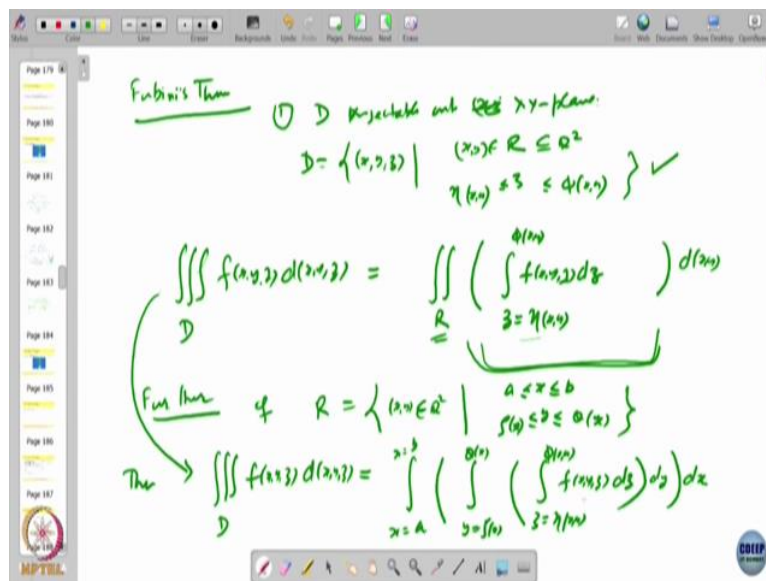 Status
Color
Line
Eraser
Backgrounds
Undo
Pages
Previous
Next
Erase
Board
Web
Documents
Show Desktop
Page 179
Page 180
Page 181
Page 182
Page 183
Page 184
Page 185
Page 186
Page 187
Fubini's Thm
① D projectable onto xy-plane.
D = { (x,y,z) | (x,y) ∈ R ⊆ R²
η(x,y) ≤ z ≤ φ(x,y) } ✓
∭_D f(x,y,z) d(x,y,z) = ∬_R ( ∫_{z=η(x,y)}^{φ(x,y)} f(x,y,z) dz ) d(x,y)
Further if R = { (x,y) ∈ R² | a ≤ x ≤ b
ζ(x) ≤ y ≤ θ(x) }
Then ∭_D f(x,y,z) d(x,y,z) = ∫_{x=a}^{x=b} ( ∫_{y=ζ(x)}^{θ(x)} ( ∫_{z=η(x,y)}^{φ(x,y)} f(x,y,z) dz ) dy ) dx
NPTEL
CDEEP